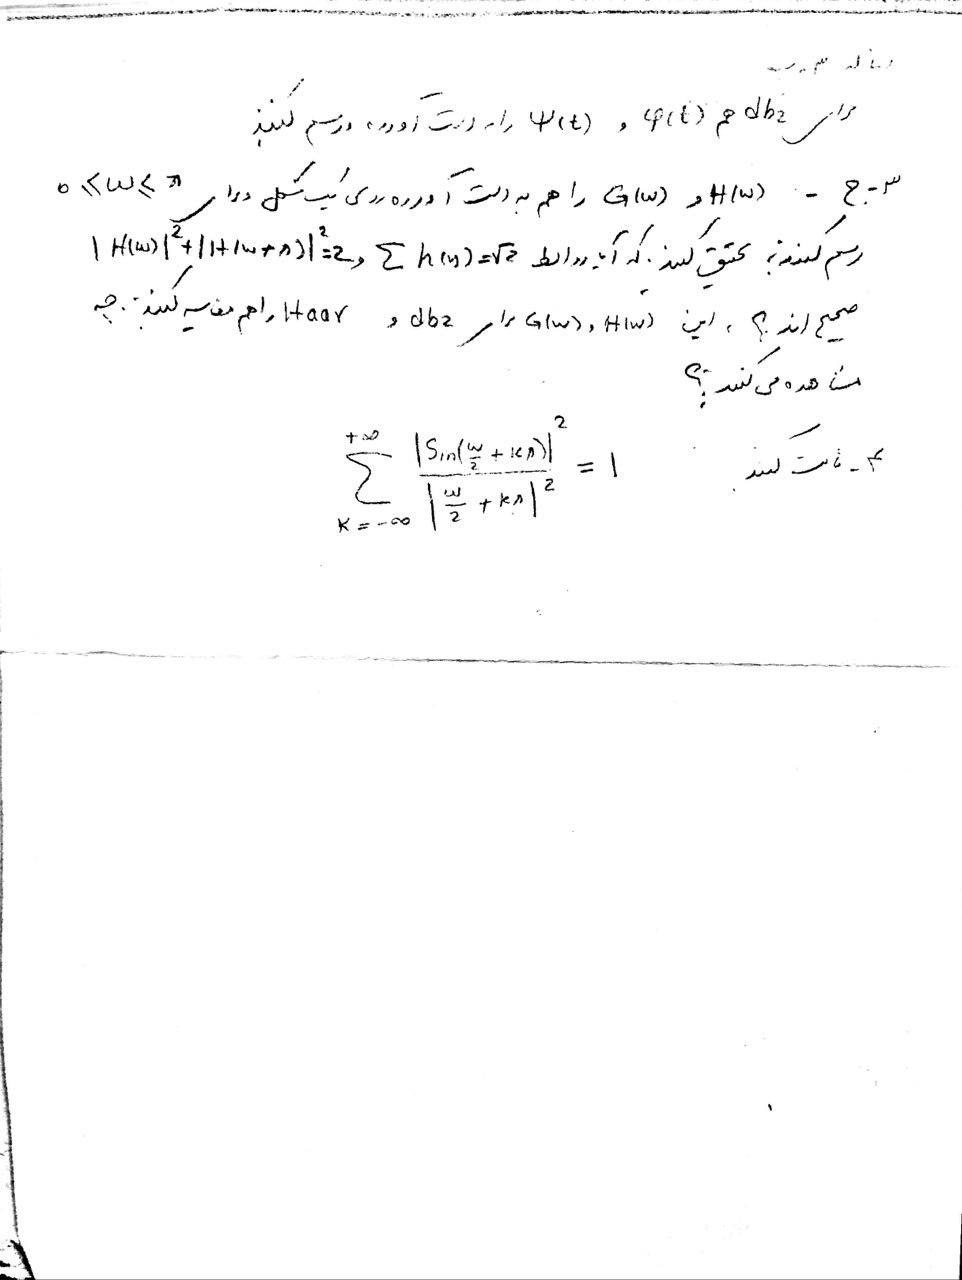 مسأله ۳-ب
برای db2 هم φ(t) و ψ(t) را به دست آورده و رسم کنید
۳-ج - H(ω) و G(ω) را هم به دست آورده روی یک شکل برای 0 ≤ ω ≤ π
رسم کنید؟ تحقیق کنید که آیا روابط Σ h(n) = √2 و |H(ω)|²+|H(ω+π)|²=2
صحیح اند؟ این H(ω) و G(ω) برای db2 و Haar را هم مقایسه کنید. چه
مشاهده می کنید؟
۴- ثابت کنید \sum_{k=-∞}^{+∞} \frac{|Sin(\frac{ω}{2} + kπ)|^2}{|\frac{ω}{2} + kπ|^2} = 1